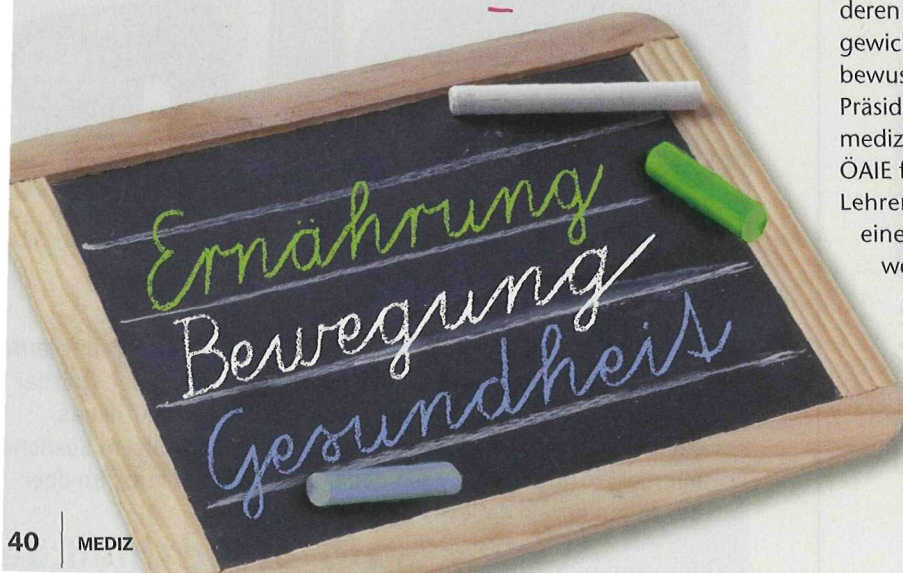 Ernährung
Bewegung
Gesundheit
deren
gewic
bewus
Präsid
mediz
ÖAIE f
Lehrer
eine
we
40 | MEDIZ